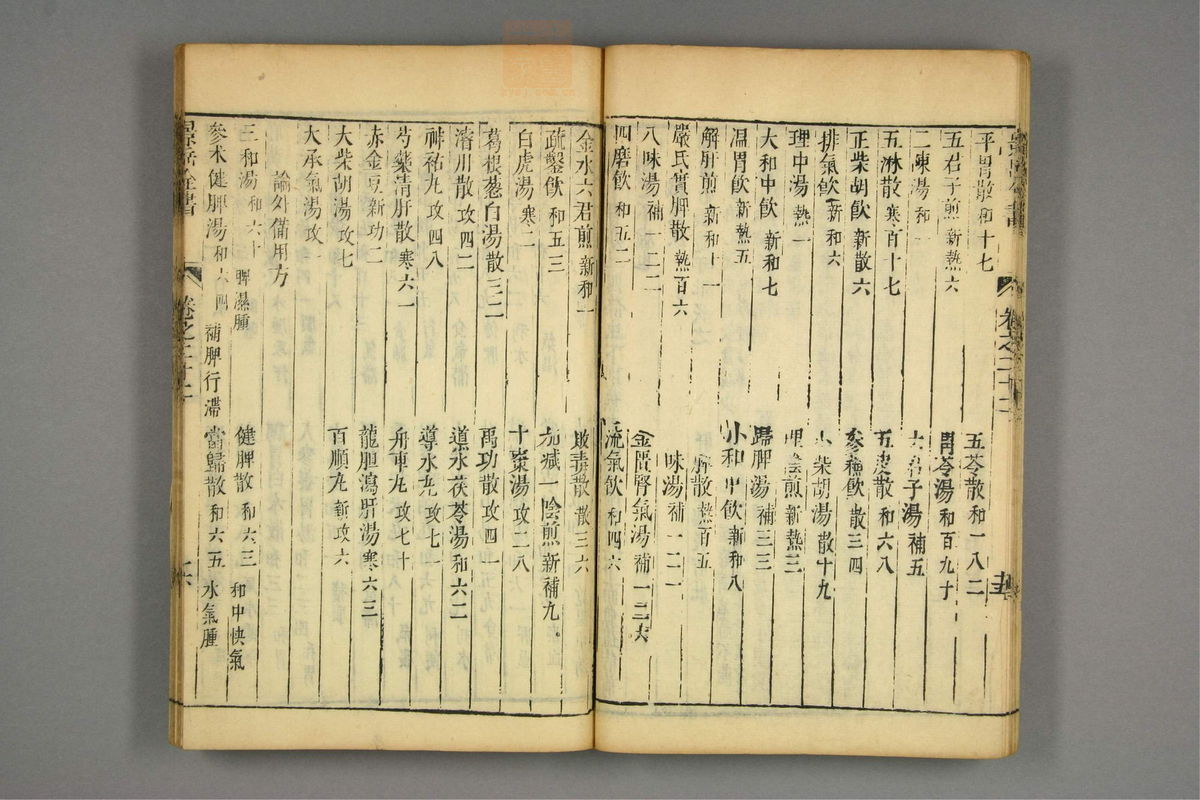 景岳全書 卷之二十二
平胃散 和十七 五苓散 和一八二
五君子煎 新熱六 胃苓湯 和百九十
二陳湯 和一 六君子湯 補五
五淋散 寒百十七 五皮散 和六八
正柴胡飲 新散六 參蘇飲 散三四
排氣飲 新和六 小柴胡湯 散十九
理中湯 熱一 理陰煎 新熱三
大和中飲 新和七 歸脾湯 補三三
温胃飲 新熱五 小和中飲 新和八
解肝煎 新和十一 解散 熱百五
嚴氏實脾散 熱百六 味湯 補一二一
八味湯 補一二二 金匱腎氣湯 補一二
四磨飲 和五二 流氣飲 和四六
金水六君煎 新和一 敗毒散 散三六
疏鑿飲 和五三 加减一陰煎 新補九
白虎湯 寒二 十棗湯 攻二八
葛根葱白湯 散三二 禹功散 攻四一
濬川散 攻四二 導水茯苓湯 和六二
神祐丸 攻四八 導水丸 攻七一
芍藥清肝散 寒六一 舟車丸 攻七十
赤金豆 新功二 龍胆瀉肝湯 寒六三
大柴胡湯 攻七 百順丸 新攻六
大承氣湯 攻一
論外備用方
三和湯 和六十 脾濕腫 健脾散 和六三 和中快氣
參术健脾湯 和六四 補脾行滯 當歸散 和六五 水氣腫
景岳全書 卷之二十二